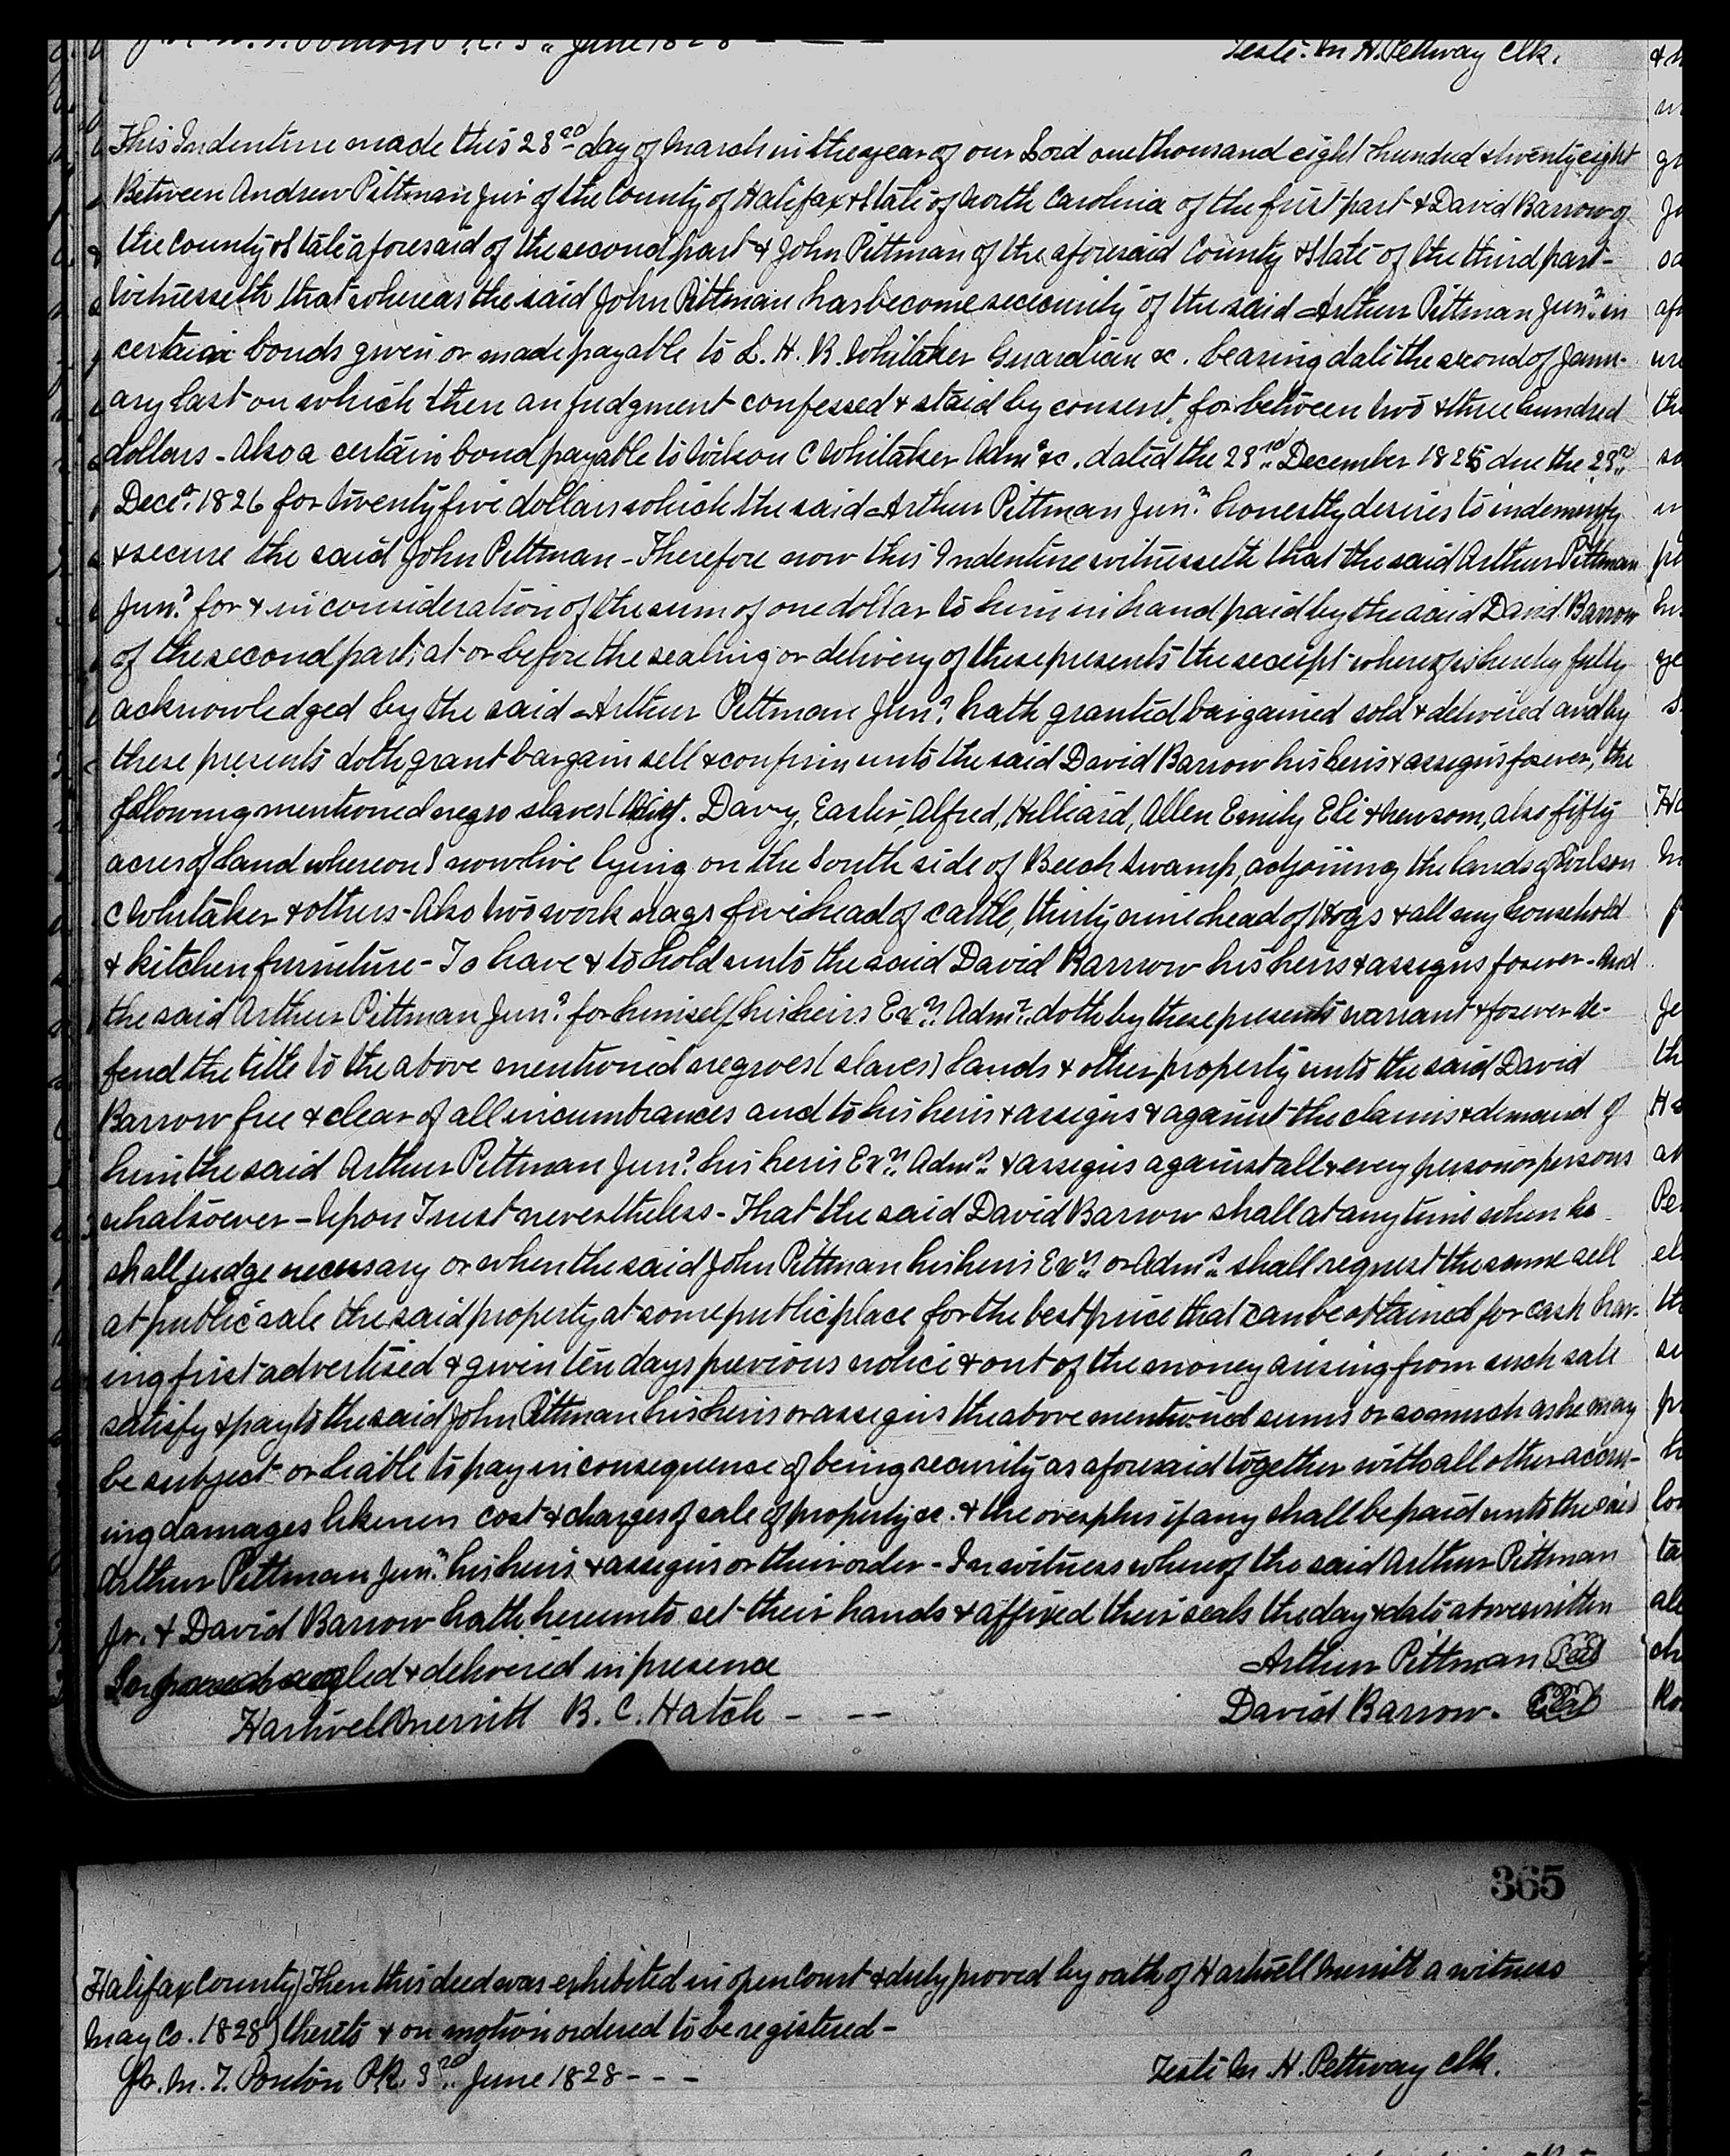 June 1828
Teste. M H. Pettway Clk.
This Indenture made this 28rd day of March in the year of our Lord one thousand eight hundred & twenty eight
Between Andrew Pittman Junr of the County of Halifax & State of North Carolina of the first part & David Barrow of
the County & State aforesaid of the second part & John Pittman of the aforesaid County & State of the third part-
Witnesseth that whereas the said John Pittman has become security of the said Arthur Pittman Junr in
certain bonds given or made payable to L. H. B. Whitaker Guardian &c. bearing date the second of Janu-
ary last on which then an judgment confessed & staid by consent, for between two & three hundred
dollars - Also a certain bond payable to Wilson C Whitaker Admr &c. dated the 28rd December 1825 due the 28rd
Decr 1826 for twenty five dollars which the said Arthur Pittman Junr honestly desires to indemnify
& secure the said John Pittman - Therefore now this Indenture witnesseth that the said Arthur Pittman
Junr for & in consideration of the sum of one dollar to him in hand paid by the said David Barrow
of the second part, at or before the sealing or delivery of these presents the receipt whereof is hereby fully
acknowledged by the said Arthur Pittman Junr hath granted bargained sold & delivered and by
these presents doth grant bargain sell & confirm unto the said David Barrow his heirs & assigns forever, the
following mentioned negro slaves (. Davy, Easter, Alfred, Hilliard, Allen Emily Eli & Newsom, also fifty
acres of land whereon I now live lying on the South side of Beech Swamp, adjoining the lands of Wilson
C Whitaker & others - Also two work stags five head of cattle, thirty nine head of Hogs & all my household
& kitchen furniture - To have & to hold unto the said David Barrow his heirs & assigns forever - And
the said Arthur Pittman Junr for himself his heirs Exrs Admrs doth by these presents warrant & forever de-
fend the title to the above mentioned negroes (slaves) lands & other property unto the said David
Barrow free & clear of all incumbrances and to his heirs & assigns & against the claims & demand of
him the said Arthur Pittman Junr his heirs Exrs Admrs & assigns against all & every person or persons
whatsoever - Upon Trust nevertheless - That the said David Barrow shall at any time when he
shall judge necessary or when the said John Pittman his heirs Exrs or Admrs shall request the same sell
at public sale the said property at some public place for the best price that can be obtained for cash hav-
ing first advertised & given ten days previous notice & out of the money arising from such sale
satisfy & pay to the said John Pittman his heirs or assigns the above mentioned sums or so much as he may
be subject or liable to pay in consequence of being security as aforesaid together with all other accru-
ing damages likewise cost & charges of sale of property &c. & the overplus if any shall be paid unto the said
Arthur Pittman Junr his heirs & assigns or their order - In witness whereof the said Arthur Pittman
Jr. & David Barrow hath hereunto set their hands & affixed their seals the day & date above written
sealed & delivered in presence
Arthur Pittman Seal
Hartwell Merritt B. C. Hatch - --
David Barrow. Seal
365
Halifax County) Then this deed was exhibited in open Court & duly proved by oath of Hartwell Merritt a witness
May Co. 1828) thereto & on motion ordered to be registered -
Jr. M. T. Ponton P.R. 3rd June 1828 - - -
Teste M. H. Pettway Clk.